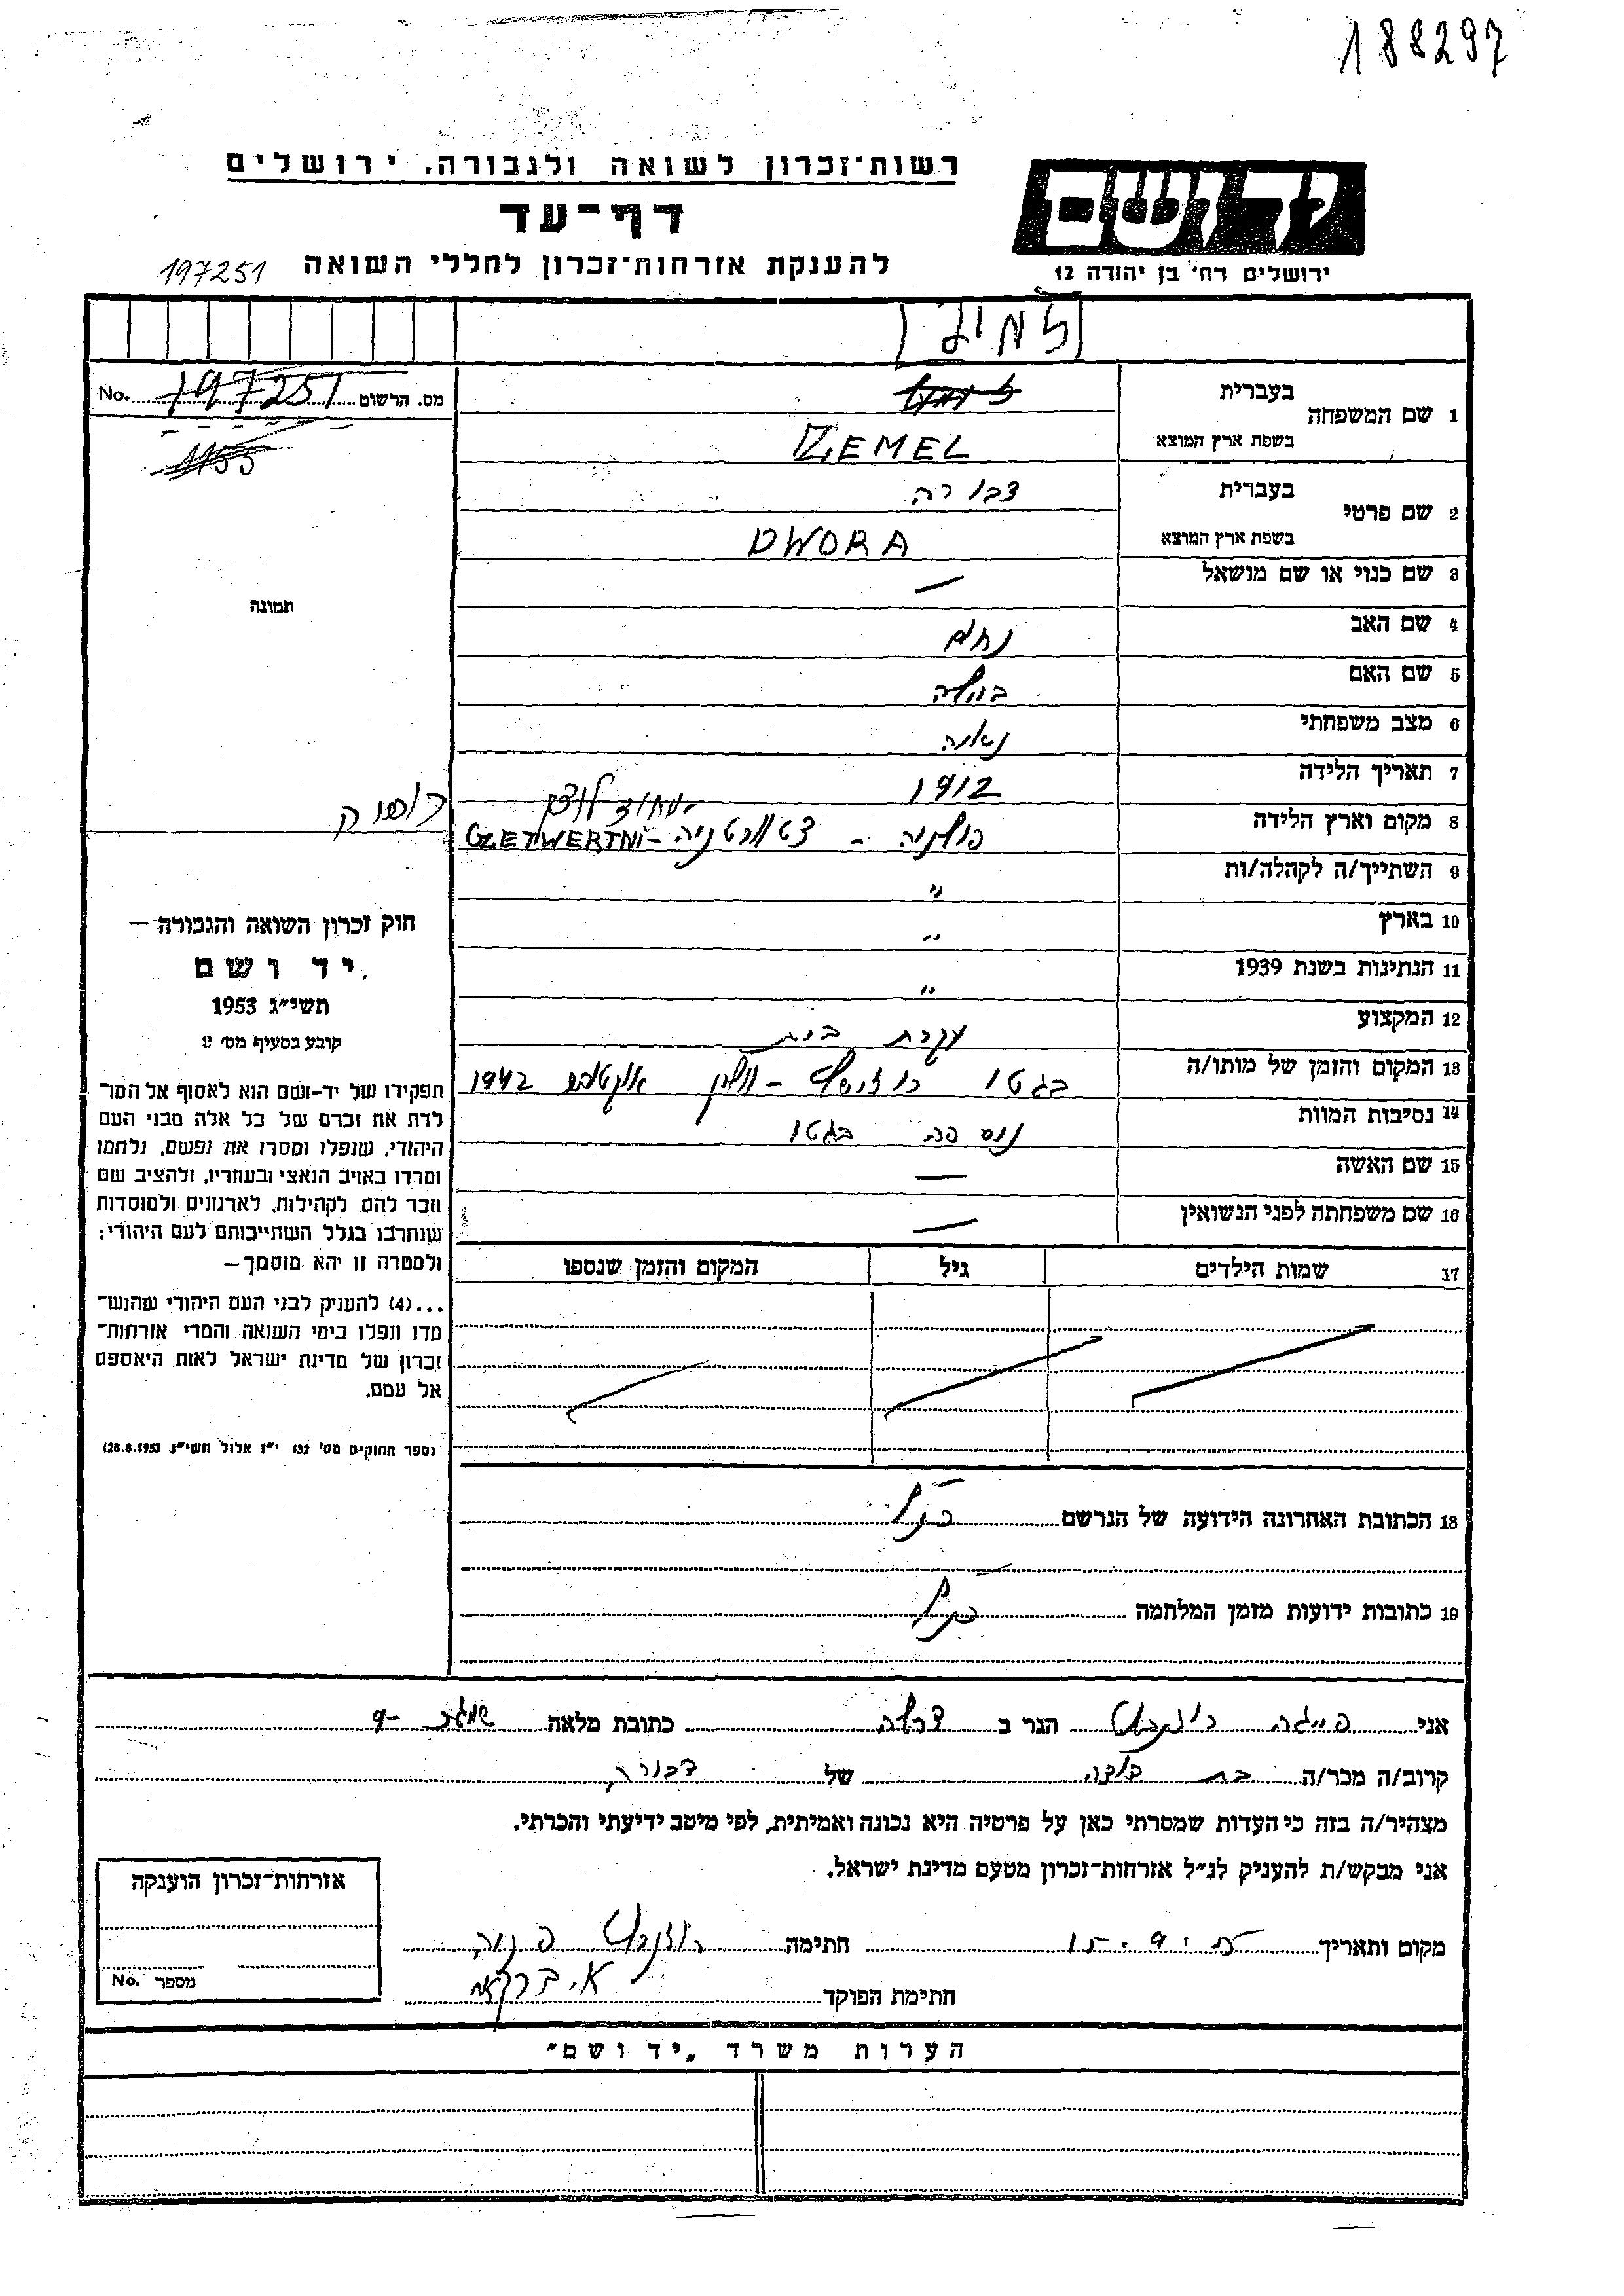 188297
רשות־זכרון לשואה ולגבורה, ירושלים
דף־עד
להענקת אזרחות־זכרון לחללי השואה
197251
יד ושם
ירושלים רח׳ בן יהודה 12
מס. הרשום 197251 No.
1155
תמונה
1 שם המשפחה
בעברית
בשפת ארץ המוצא ZEMEL
2 שם פרטי
בעברית דבורה
בשפת ארץ המוצא DWORA
3 שם כנוי או שם מושאל —
4 שם האב נחום
5 שם האם
6 מצב משפחתי נשואה
7 תאריך הלידה 1912
8 מקום וארץ הלידה פולניה - צטוורטניה - CZETWERTNI
9 השתייך/ה לקהלה/ות "
10 בארץ "
11 הנתינות בשנת 1939 "
12 המקצוע עקרת בית
13 המקום והזמן של מותו/ה בגטו ווהלין אוקטובר 1942
14 נסיבות המוות נספה בגטו
15 שם האשה —
16 שם משפחתה לפני הנשואין —
17 שמות הילדים גיל המקום והזמן שנספו
חוק זכרון השואה והגבורה —
יד ושם
תשי״ג 1953
קובע בסעיף מס׳ 2
תפקידו של יד-ושם הוא לאסוף אל המו־
לדת את זכרם של כל אלה מבני העם
היהודי, שנפלו ומסרו את נפשם, נלחמו
ומרדו באויב הנאצי ובעוזריו, ולהציב שם
וזכר להם לקהילות, לארגונים ולמוסדות
שנחרבו בגלל השתייכותם לעם היהודי;
ולמטרה זו יהא מוסמך —
...(4) להעניק לבני העם היהודי שהוש־
מדו ונפלו בימי השואה והמרי אזרחות־
זכרון של מדינת ישראל לאות היאספם
אל עמם.
(ספר החוקים מס׳ 132 י״ז אלול תשי״ג 28.8.1953)
18 הכתובת האחרונה הידועה של הנרשם כנ״ל
19 כתובות ידועות מזמן המלחמה כנ״ל
אני פייגה הגר ב כתובת מלאה
קרוב/ה מכר/ה בת דודה של דבורה
מצהיר/ה בזה כי העדות שמסרתי כאן על פרטיה היא נכונה ואמיתית, לפי מיטב ידיעתי והכרתי.
אני מבקש/ת להעניק לנ״ל אזרחות-זכרון מטעם מדינת ישראל.
מקום ותאריך חתימה
חתימת הפוקד
אזרחות-זכרון הוענקה
מספר No.
הערות משרד „יד ושם״